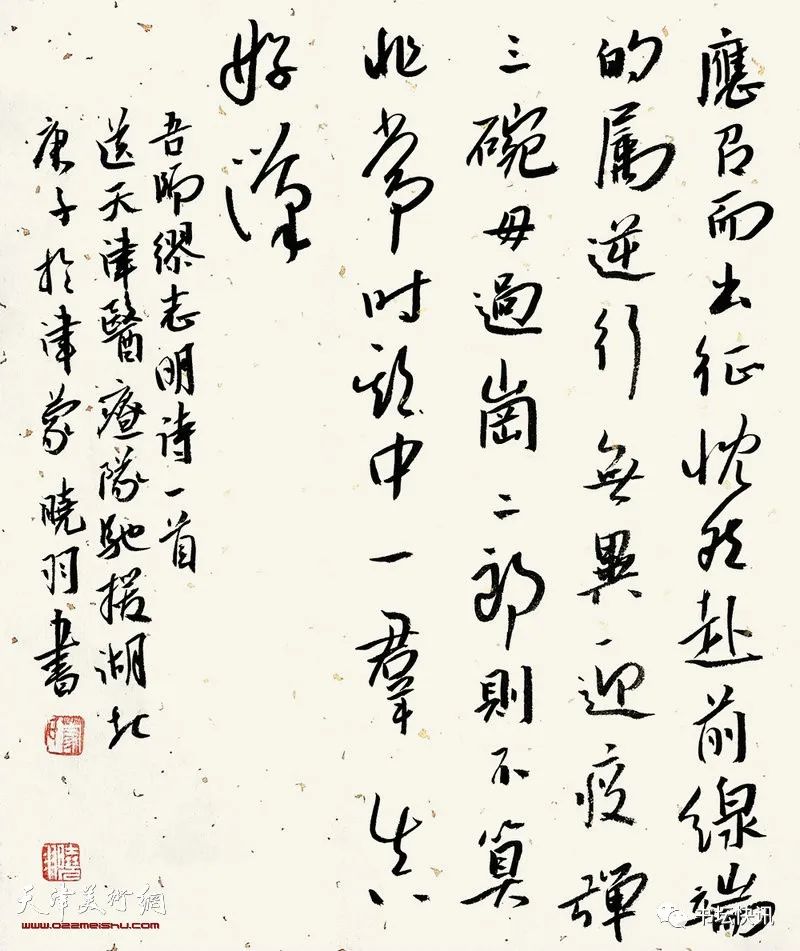 應召而出征慨然赴前線端
的属逆行無異迎疫彈
三碗毋過崗二郎則不算
非常时期中一羣真
好漢
吾師繆志明詩一首
送天津醫療隊馳援湖北
庚子於津蒙曉羽書
天津美術網
www.022meishu.com
书坛快讯